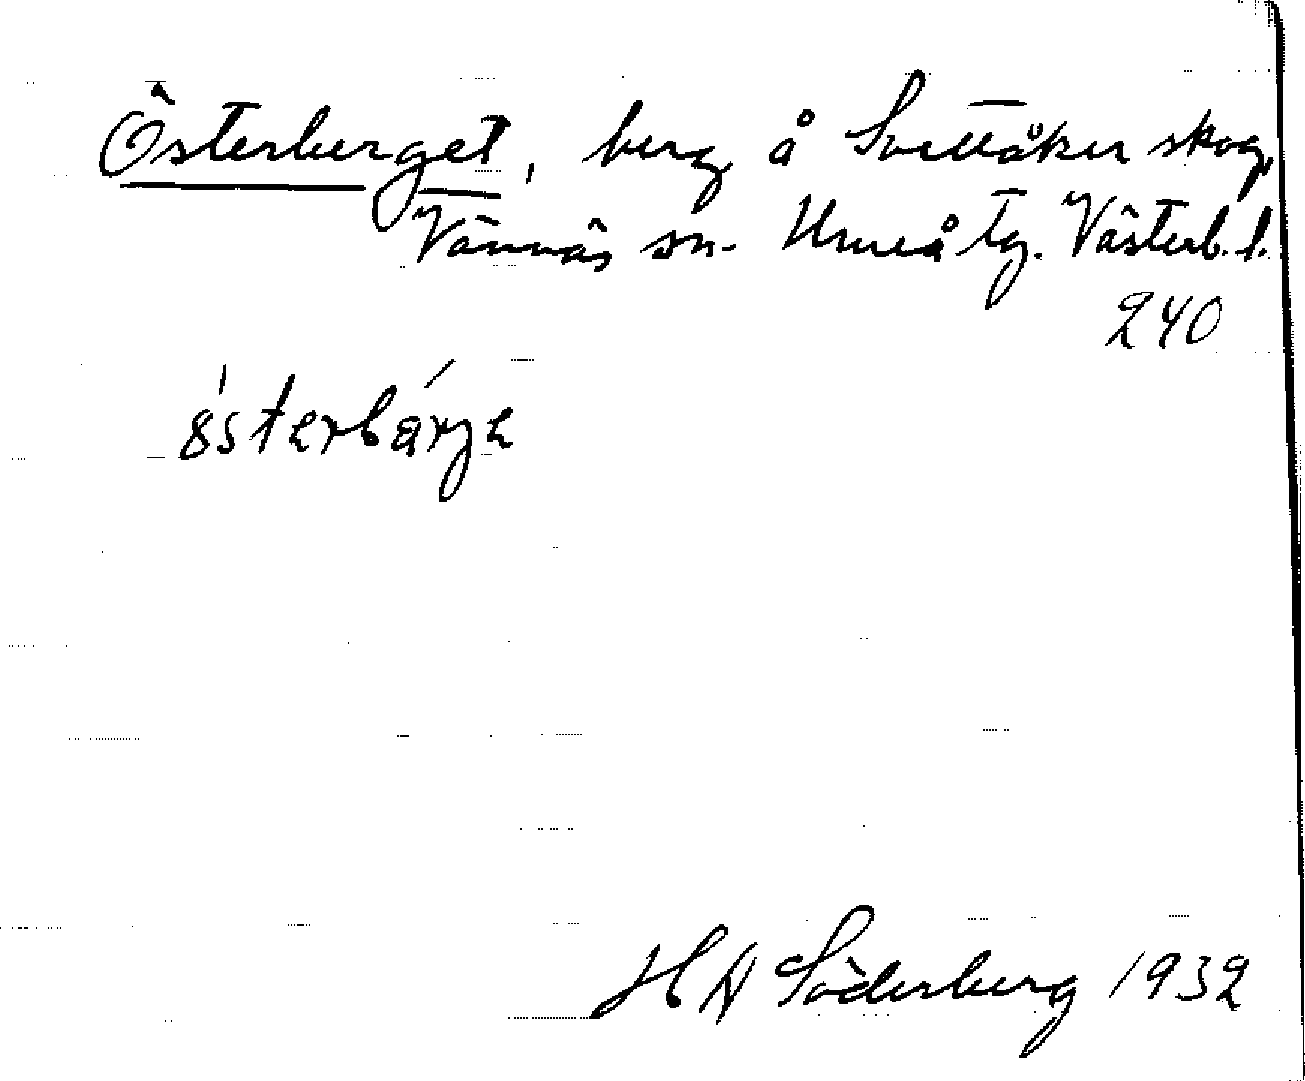 Österberget, berg å Svettåker skog,
Vännäs sn. Umeå tg. Västerb. l.
240
österbárje
H N Söderberg 1932